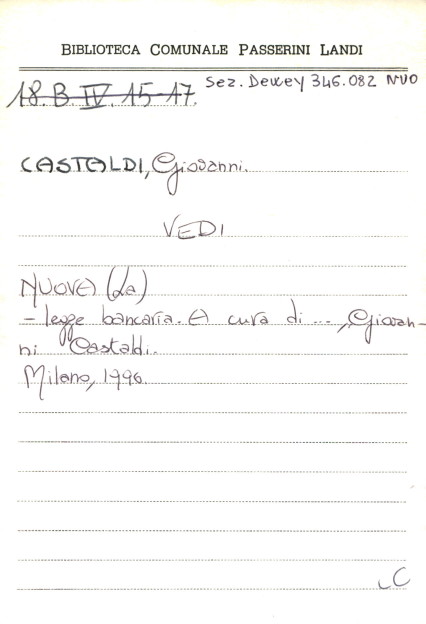 BIBLIOTECA COMUNALE PASSERINI LANDI
18. B. IV. 15-17. Sez. Dewey 346.082 NUO
CASTALDI, Giovanni.
VEDI
NUOVA (La)
- legge bancaria. A cura di ..., Giovan-
ni Castaldi.
Milano, 1996.